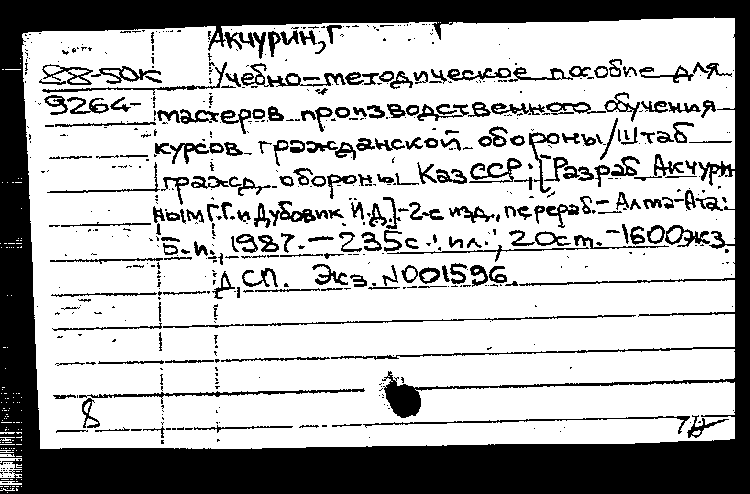 Акчурин, Г
88-50к Учебно-методическое пособие для
9264- мастеров производственного обучения
курсов гражданской обороны/Штаб
гражд. обороны КазССР; [Разраб. Акчурин
ным Г.Г. и Дубовик И.Д.]-2-е изд., перераб.-Алма-Ата:
Б.и., 1987.-235с.: ил.; 20ст.-1600экз.
ДСП. Экз. N001596.
8